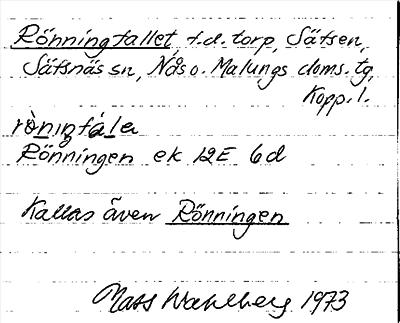 Rönningtallet, f.d. torp, Sätsen,
Sätsnäs sn, Nås o. Malungs doms. tg,
Kopp. l.
rò̀niŋtála
Rönningen ek 12E 6d
Kallas även Rönningen
Mats Wahlberg 1973